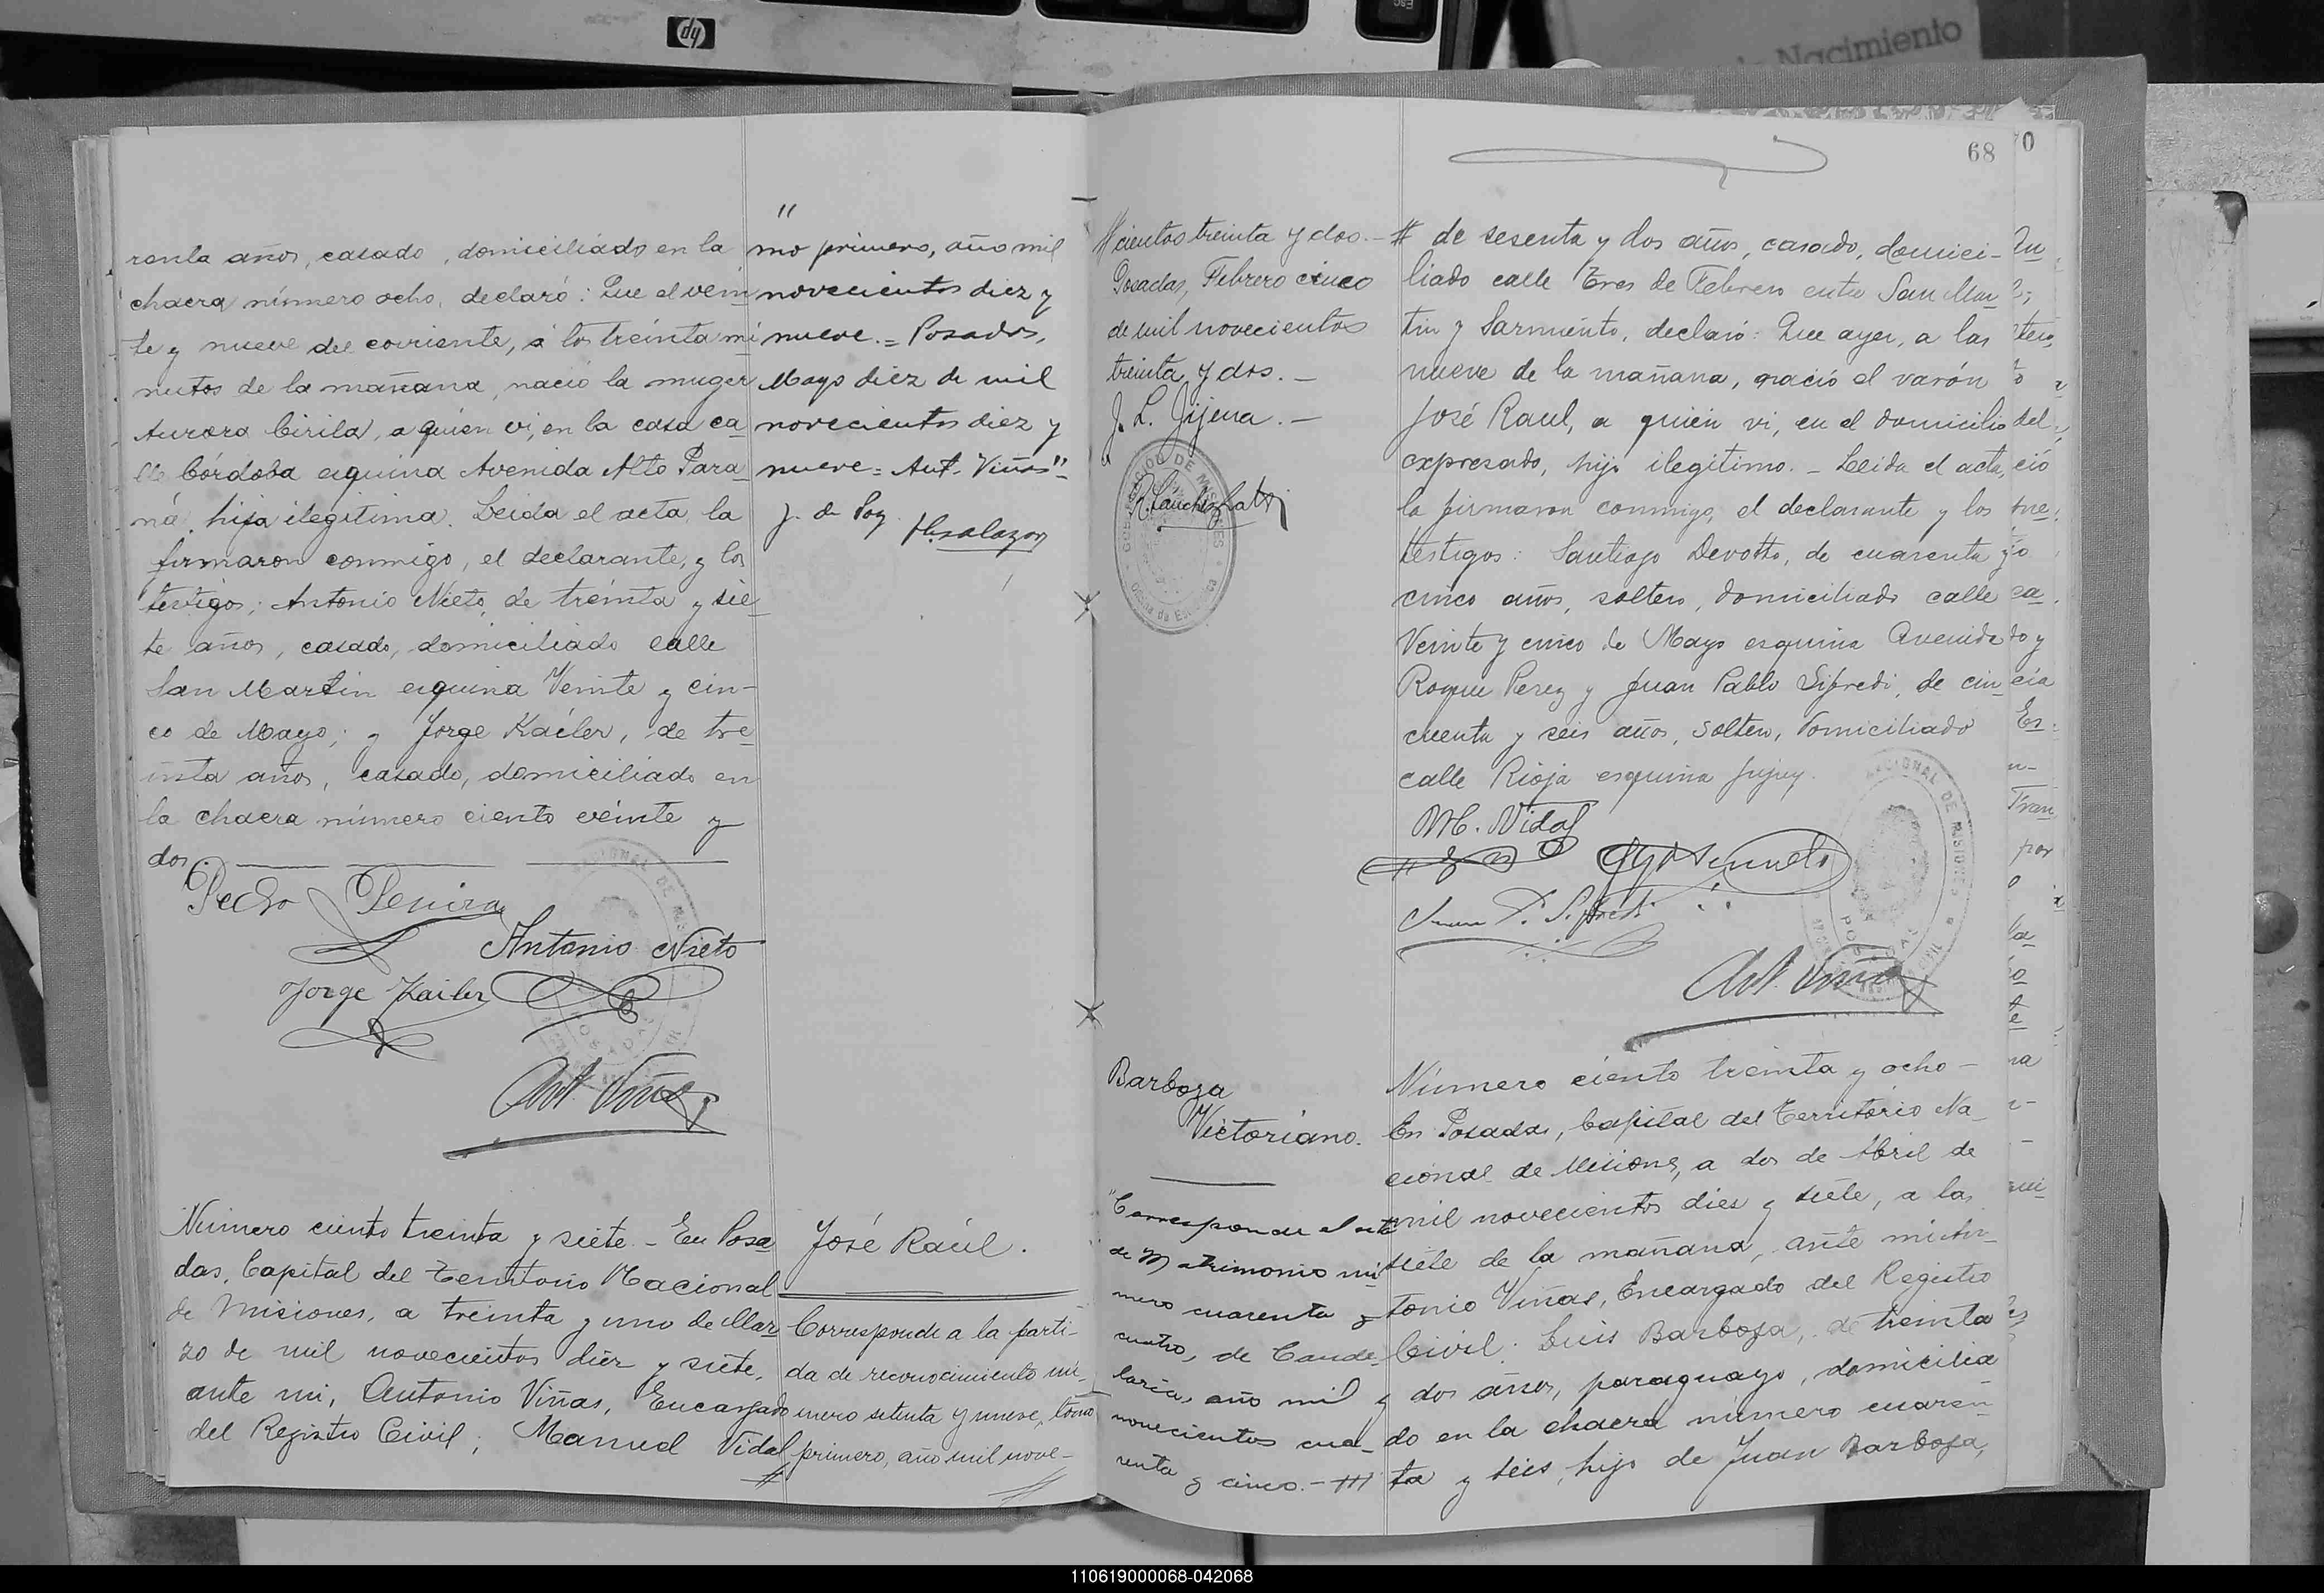 hp
ESC
Nacimiento
renta años, casado, domiciliado en la
chacra número ocho, declaró: Que el vein
te y nueve del corriente, á los treinta mi
nutos de la mañana, nació la muger
Aurora Cirila, a quién vi, en la casa ca
lle Córdoba esquina Avenida Alto Para
ná, hija ilegitima. Leida el acta, la
firmaron conmigo, el declarante, y los
testigos; Antonio Nieto, de treinta y sie
te años, casado, domiciliado calle
San Martin esquina Veinte y cin-
co de Mayo; y Jorge Kaéler, de tre
inta años, casado, domiciliado en
la chacra número ciento veinte y
dos.
Pedro Pereira
Antonio Nieto
Jorge Kailer
Ant. Viñas
Número ciento treinta y siete.- En Posa
das, Capital del Territorio Nacional
de Misiones, a treinta y uno de Mar
zo de mil novecientos diez y siete,
ante mi, Antonio Viñas, Encargado
del Registro Civil; Manuel Vidal
"
mo primero, año mil
novecientos diez y
nueve.= Posadas,
Mayo diez de mil
novecientos diez y
nueve= Ant. Viñas"
J. de Poy
José Raúl.
Corresponde a la parti-
da de reconocimiento nú-
mero setenta y nueve, tomo
primero, año mil nove-
cientos treinta y dos.-
Posadas, Febrero cinco
de mil novecientos
treinta y dos.-
J. L. Jijena.-
Barboza
Victoriano.
"Corresponde al acta
de Matrimonio nú
mero cuarenta y
cuatro, de Cande-
laria, año mil
novecientos cua-
renta y cinco.-
68
# de sesenta y dos años, casado, domici-
liado calle Tres de Febrero entre San Mar
tin y Sarmiento, declaró: Que ayer, a las
nueve de la mañana, nació el varón
José Raul, a quien vi, en el domicilio
expresado, hijo ilegitimo.- Leida el acta,
la firmaron conmigo, el declarante y los
testigos: Santiago Devotto, de cuarenta y
cinco años, soltero, domiciliado calle
Veinte y cinco de Mayo esquina Avenida
Roque Perez y Juan Pablo Sifredi, de cin
cuenta y seis años, soltero, domiciliado
calle Rioja esquina Jujuy.
M. Vidal
Juan P. Sifredi
Ant. Viñas
Número ciento treinta y ocho-
En Posadas, Capital del Territorio Na
cional de Misiones, a dos de Abril de
mil novecientos dies y siete, a las
siete de la mañana, ante mi An
tonio Viñas, Encargado del Registro
Civil: Luis Barboza, de treinta
y dos años, paraguayo, domicilia
do en la chacra número cuaren
ta y seis, hijo de Juan Barboza,
110619000068-042068